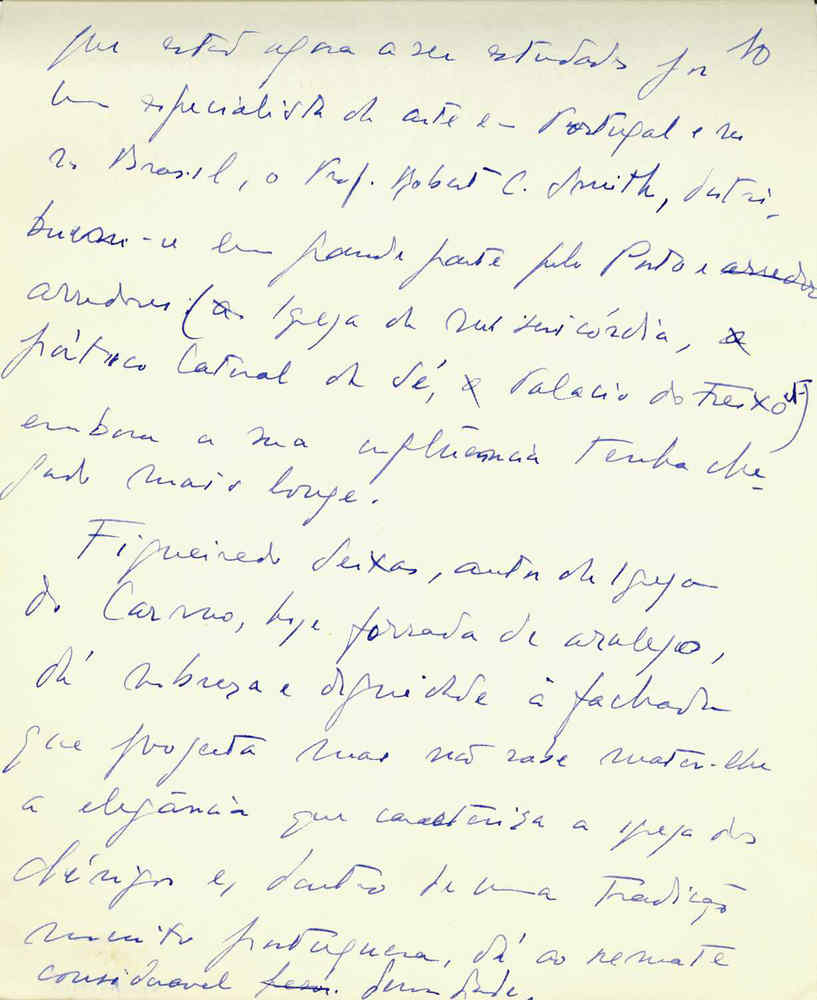 10
que está agora a ser estudado por
um especialista da arte em Portugal e
no Brasil, o Prof. Robert C. Smith, distri-
buem-se em grande parte pelo Porto e arredor
arredores (a Igreja da Misericórdia, o
pórtico lateral da Sé, o Palacio do Freixo)
embora a sua influência tenha che-
gado mais longe.
Figueiredo Seixas, autor da Igreja
do Carmo, hoje forrada de azulejo,
dá nobreza e dignidade à fachada
que projecta mas não sabe
a elegância que caracteriza a igreja dos
Clérigos e, dentro de uma tradição
muito portuguesa, dá ao remate
consideravel